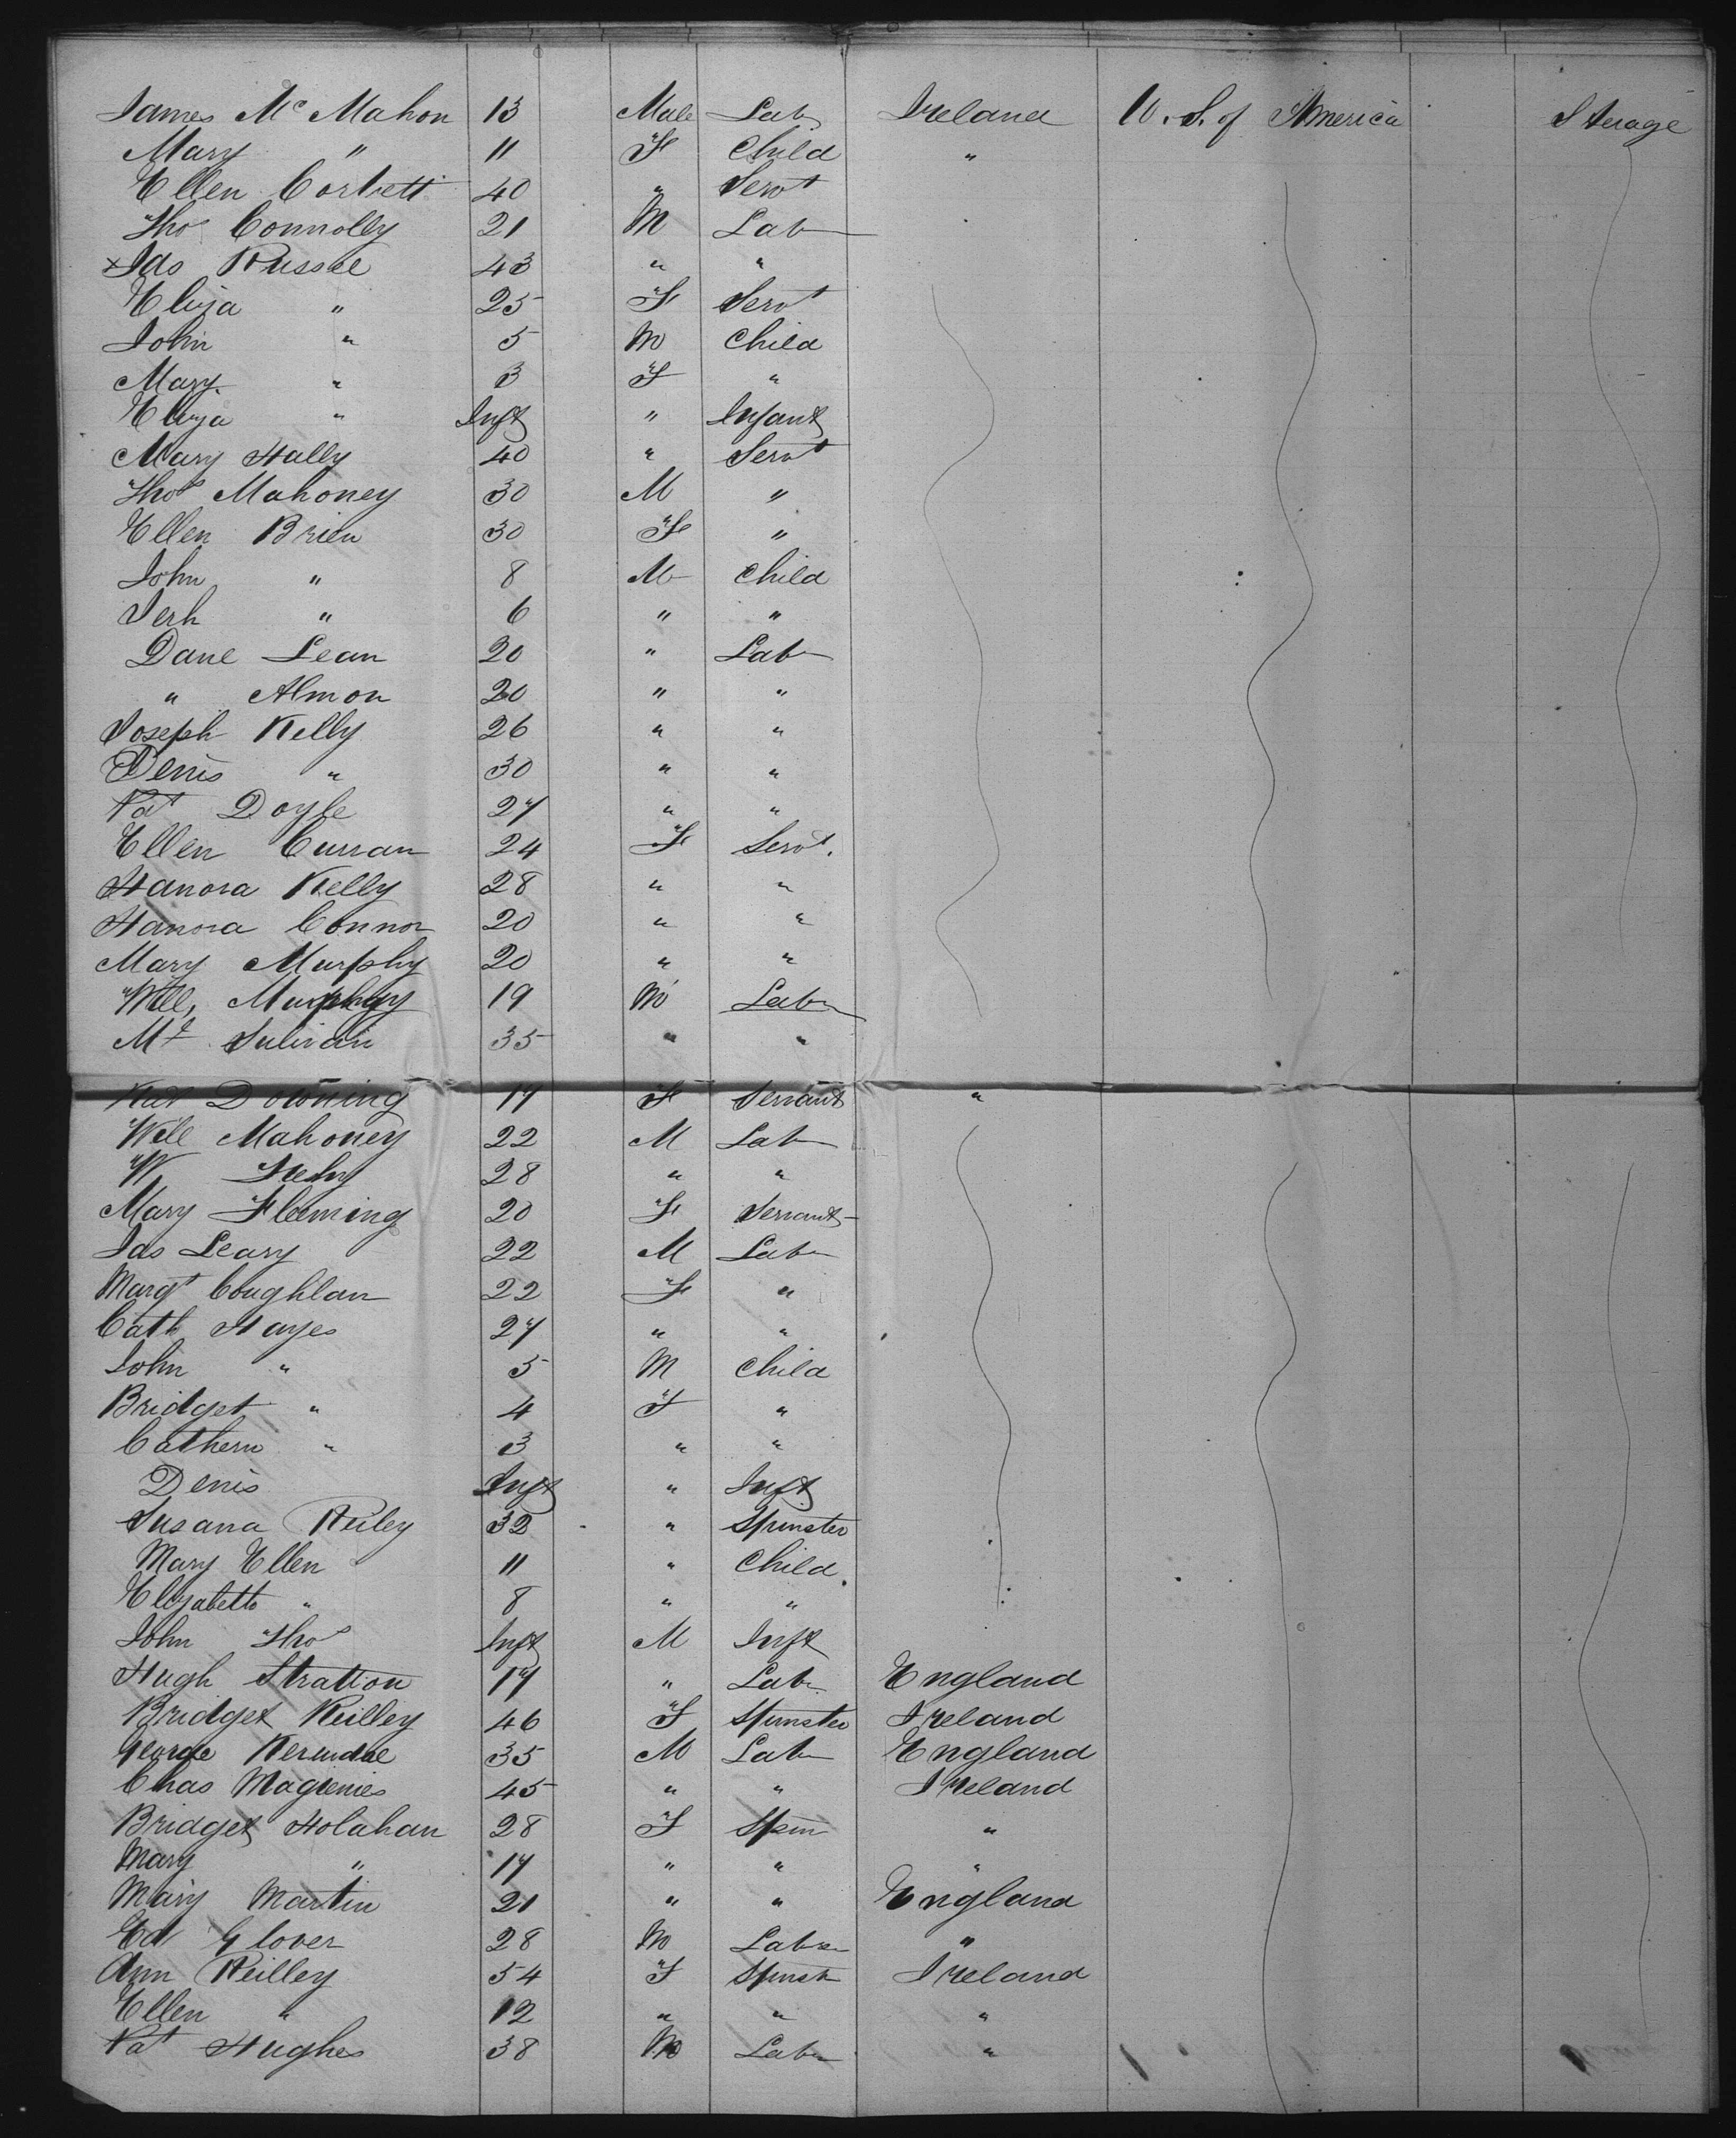 James Mc Mahon 13 Male Lab Ireland U. S. of America Sterage
Mary " 11 F Child "
Ellen Corbett 40 " Servt
Thos Connolly 21 M Lab
x Jas Russel 43 " "
Eliza " 25 F Servt
John " 5 M Child
Mary " 3 F "
Eliza " Inft " Infant
Mary Hally 40 " Servt
Thos Mahoney 30 M "
Ellen Brien 30 F "
John " 8 M Child
Jerh " 6 " "
Dane Lean 20 " Lab
" Almon 20 " "
Joseph Kelly 26 " "
Denis " 30 " "
Pat Doyle 27 " "
Ellen Curran 24 F Servt.
Hanora Kelly 28 " "
Hanora Connor 20 " "
Mary Murphy 20 " "
Will, Murphy 19 M Lab
Ml Sulivan 35 " "
Downing 17 F Servant "
Will Mahoney 22 M Lab
W 28 " "
Mary Fleeming 20 F Servant
Jas Leary 22 M Lab
Margt Coughlan 22 F "
Cath Hayes 27 " "
John " 5 M Child
Bridget " 4 F "
Cathern " 3 " "
Denis Inft " Inft
Susana Reiley 32 " Spinster
Mary Ellen 11 " Child
Elizabeth " 8 " "
John Thos Inft M Inft
Hugh Stratton 17 " Lab England
Bridget Reilley 46 F Spinster Ireland
George 35 M Lab England
Chas 45 " " Ireland
Bridget Holahan 28 F Spin "
Mary " 17 " " "
Mary Martin 21 " " England
Ed Glover 28 M Lab "
Ann Reilley 54 F Spinst Ireland
Ellen " 12 " " "
Pat Hughes 38 M Lab "